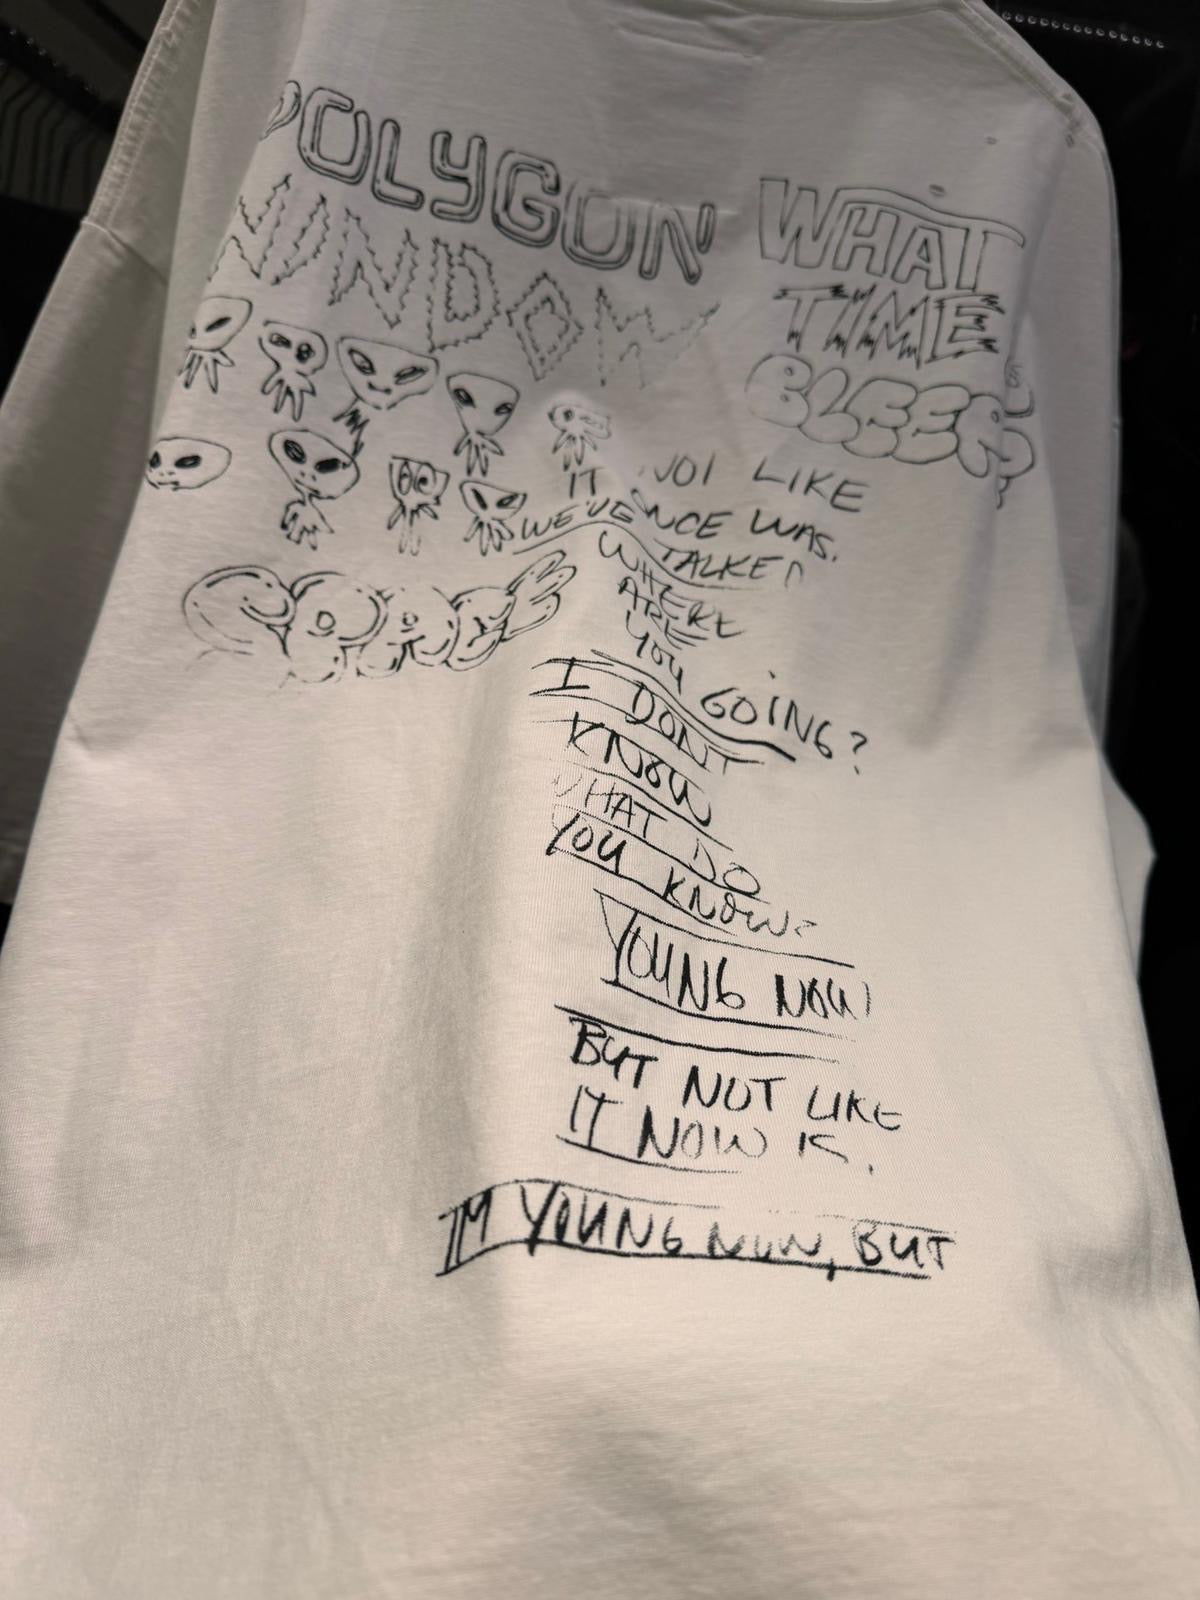 POLYGON
WINDOW
WHAT
TIME
BLEEP
IT NOT LIKE
WE'VE ONCE WAS.
TALKED
WHERE
ARE
YOU GOING?
I DONT
KNOW
WHAT DO
YOU KNOW?
YOUNG NOW
BUT NOT LIKE
IT NOW IS.
IM YOUNG NOW, BUT